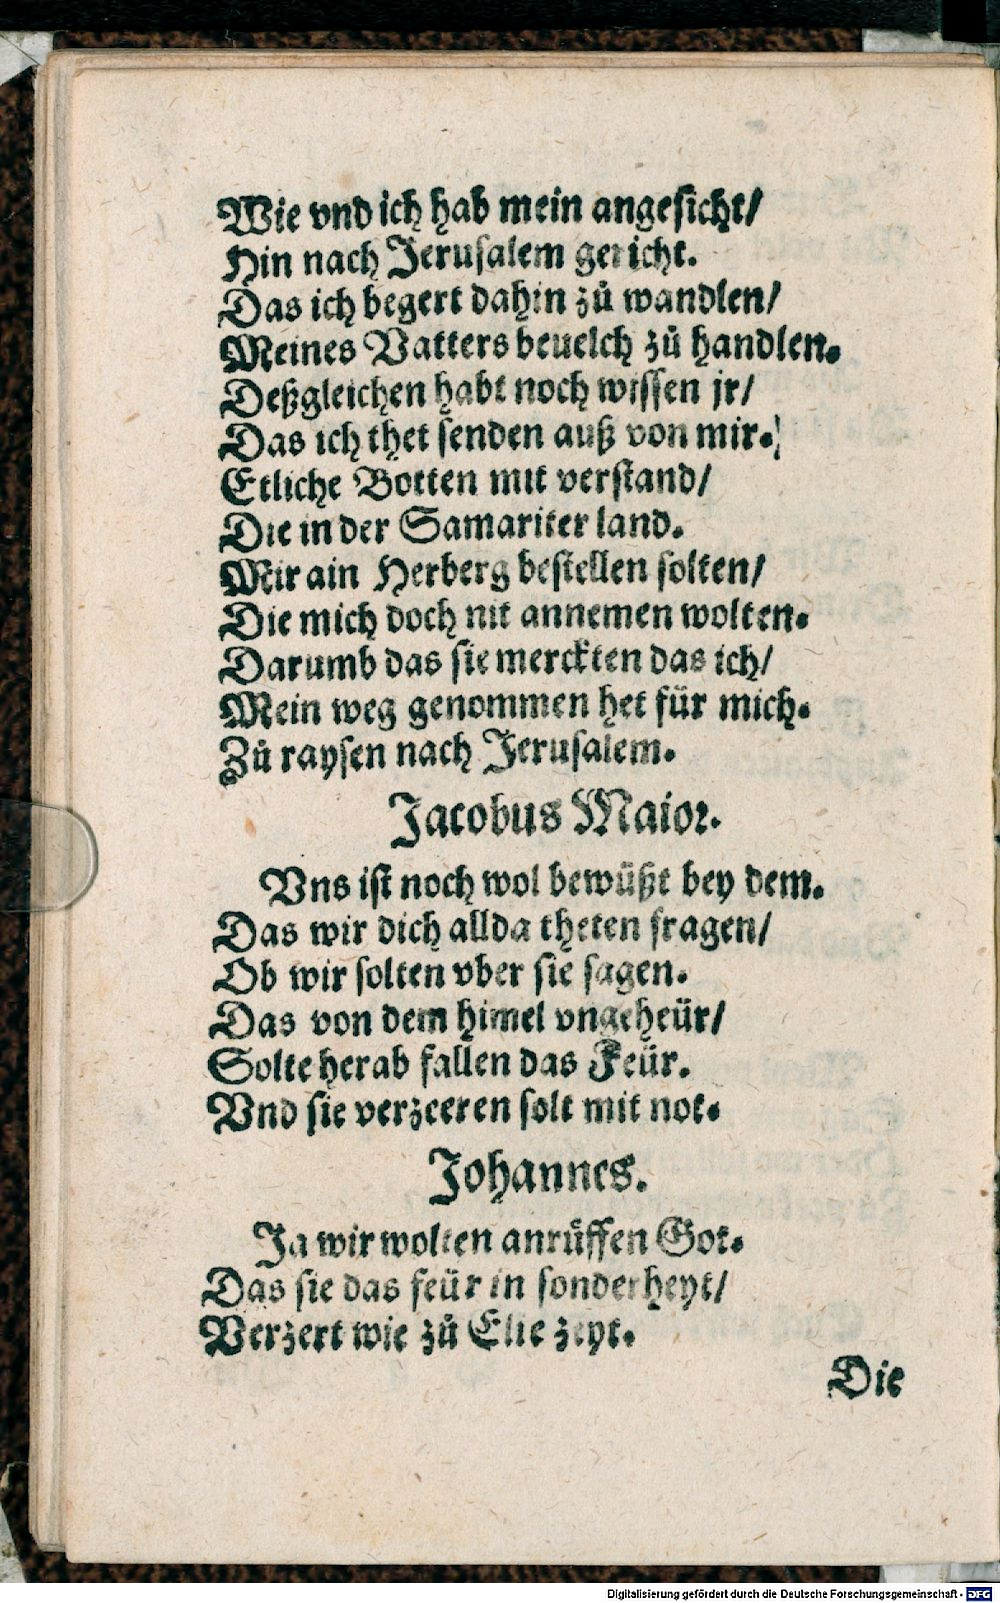 Wie vnd ich hab mein angesicht/
Hin nach Jerusalem gericht.
Das ich begert dahin zů wandlen/
Meines Vatters beuelch zů handlen.
Deßgleichen habt noch wissen jr/
Das ich thet senden auß von mir.
Etliche Botten mit verstand/
Die in der Samariter land.
Mir ain Herberg bestellen solten/
Die mich doch nit annemen wolten.
Darumb das sie merckten das ich/
Mein weg genommen het für mich.
Zů raysen nach Jerusalem.
Jacobus Maior.
Vns ist noch wol bewüßt bey dem.
Das wir dich allda theten fragen/
Ob wir solten vber sie sagen.
Das von dem himel vngeheür/
Solte herab fallen das Feür.
Vnd sie verzeeren solt mit not.
Johannes.
Ja wir wolten anrůffen Got.
Das sie das feür in sonderheyt/
Verzert wie zů Elie zeyt.
Die
Digitalisierung gefördert durch die Deutsche Forschungsgemeinschaft - DFG